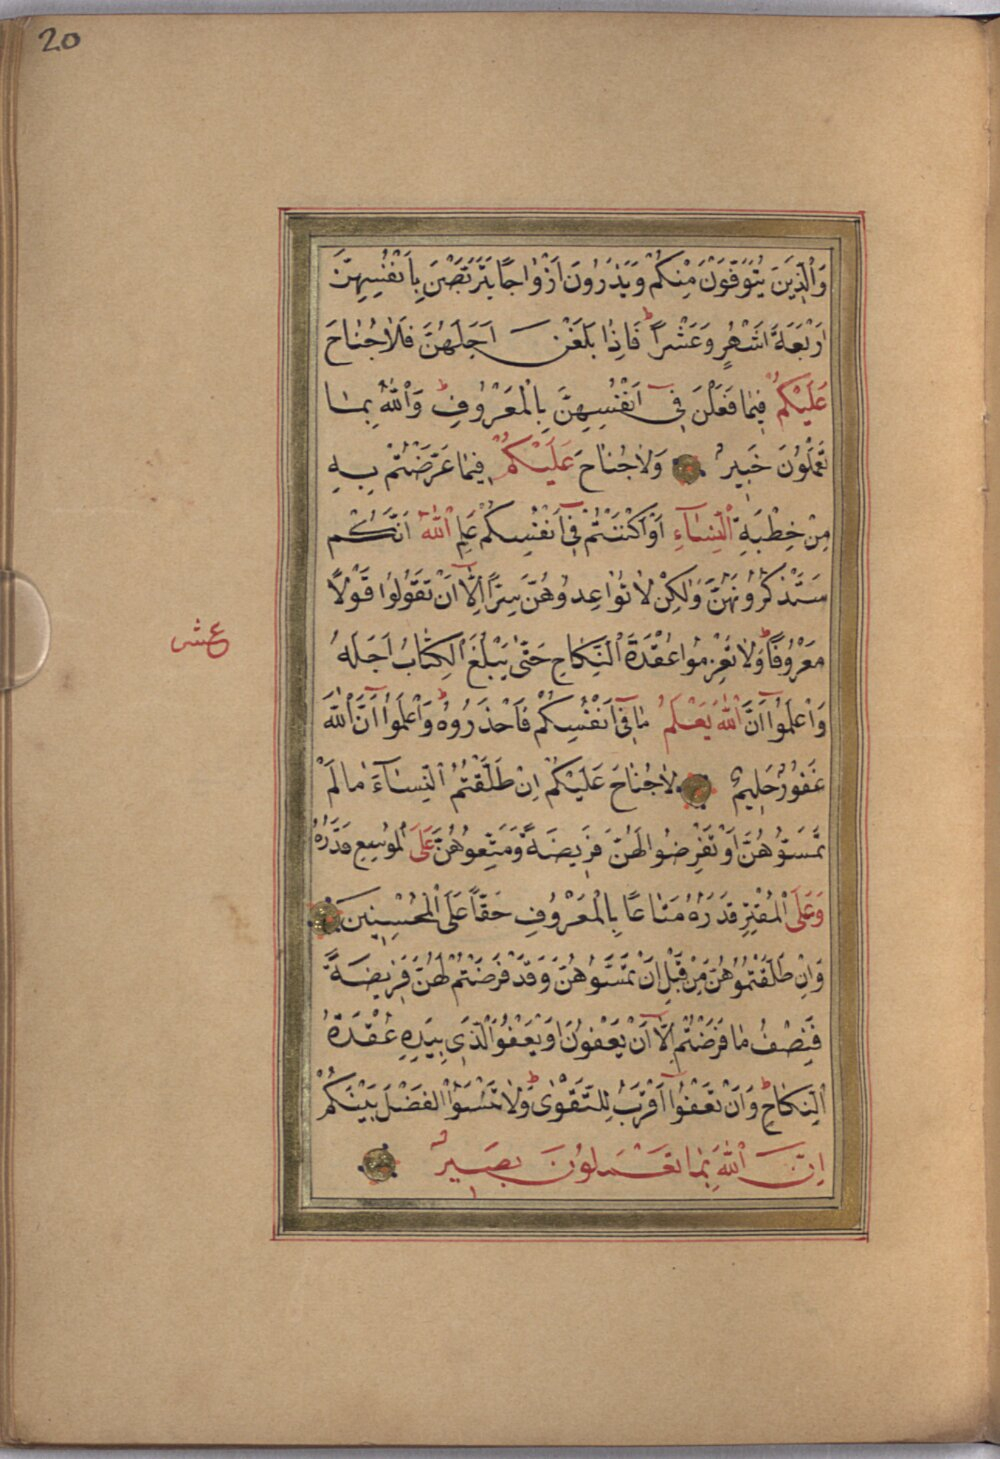 20
وَالَّذِينَ يُتَوَفَّوْنَ مِنْكُمْ وَيَذَرُونَ اَزْوَاجًا يَتَرَبَّصْنَ بِاَنْفُسِهِنَّ
اَرْبَعَةَ اَشْهُرٍ وَعَشْراً فَاِذَا بَلَغْنَ اَجَلَهُنَّ فَلَا جُنَاحَ
عَلَيْكُمْ فِيمَا فَعَلْنَ فِٓى اَنْفُسِهِنَّ بِالْمَعْرُوفِ وَاللّٰهُ بِمَا
تَعْمَلُونَ خَبِيرٌ وَلَا جُنَاحَ عَلَيْكُمْ فِيمَا عَرَّضْتُمْ بِهِ
مِنْ خِطْبَةِ النِّسَٓاءِ اَوْ اَكْنَنْتُمْ فِٓى اَنْفُسِكُمْ عَلِمَ اللّٰهُ اَنَّكُمْ
سَتَذْكُرُونَهُنَّ وَلٰكِنْ لَا تُوَاعِدُوهُنَّ سِرًّا اِلَّٓا اَنْ تَقُولُوا قَوْلًا
مَعْرُوفًا وَلَا تَعْزِمُوا عُقْدَةَ النِّكَاحِ حَتّٰى يَبْلُغَ الْكِتَابُ اَجَلَهُ
وَاعْلَمُٓوا اَنَّ اللّٰهَ يَعْلَمُ مَا فِٓى اَنْفُسِكُمْ فَاحْذَرُوهُ وَاعْلَمُٓوا اَنَّ اللّٰهَ
غَفُورٌ حَلِيمٌ لَا جُنَاحَ عَلَيْكُمْ اِنْ طَلَّقْتُمُ النِّسَٓاءَ مَا لَمْ
تَمَسُّوهُنَّ اَوْ تَفْرِضُوا لَهُنَّ فَرِيضَةً وَمَتِّعُوهُنَّ عَلَى الْمُوسِعِ قَدَرُهُ
وَعَلَى الْمُقْتِرِ قَدَرُهُ مَتَاعًا بِالْمَعْرُوفِ حَقّاً عَلَى الْمُحْسِنِينَ
وَاِنْ طَلَّقْتُمُوهُنَّ مِنْ قَبْلِ اَنْ تَمَسُّوهُنَّ وَقَدْ فَرَضْتُمْ لَهُنَّ فَرِيضَةً
فَنِصْفُ مَا فَرَضْتُمْ اِلَّٓا اَنْ يَعْفُونَ اَوْ يَعْفُوَا الَّذِى بِيَدِهِ عُقْدَةُ
النِّكَاحِ وَاَنْ تَعْفُٓوا اَقْرَبُ لِلتَّقْوٰى وَلَا تَنْسَوُا الْفَضْلَ بَيْنَكُمْ
اِنَّ اللّٰهَ بِمَا تَعْمَلُونَ بَصِيرٌ
عشر